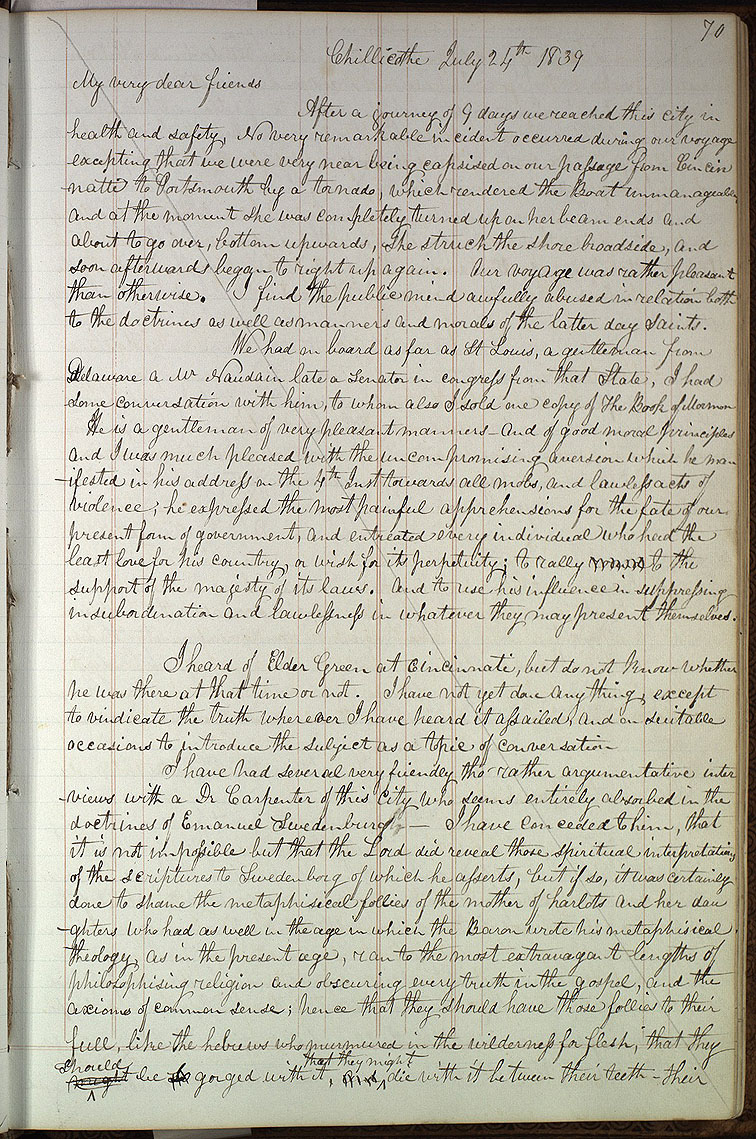 70
Chillicothe July 24th 1839
My very dear friends
After a journey of 9 days we reached this city in
health and safety, No very remarkable incident occurred during our voyage
excepting that we were very near being capsised on our passage from Cincin
natti to Portsmouth by a tornado, which rendered the Boat unmanageable
and at the moment she was completely turned up on her beam ends and
about to go over, bottom upwards, She struck the shore broadside, and
soon afterwards began to right up again. Our voyage was rather pleasant
than otherwise. I find the public mind awfully abused in relation both
to the doctrines as well as manners and morals of the latter day Saints.
We had on board as far as St Louis, a gentleman from
Delaware a Mr Naudain late a Senator in congress from that State, I had
some conversation with him, to whom also I sold one copy of The Book of Mormon
He is a gentleman of very pleasant manners and of good moral principles
and I was much pleased with the uncompromising aversion which he man
-ifested in his address on the 4th Inst towards all mobs, and lawless acts of
violence; he expressed the most painful apprehensions for the fate of our
present form of government, and entreated every individual who had the
least love for his country, or wish for its perpetuity; to rally to the
support of the majesty of its laws. And to use his influence in suppressing
insubordination and lawlessness in whatever they may present themselves.
I heard of Elder Green at Cincinnati, but do not know whether
he was there at that time or not. I have not yet done any thing, except
to vindicate the truth wherever I have heard it assailed, and on suitable
occasions to introduce the subject as a topic of conversation
I have had several very friendly tho' rather argumentative inter
-views with a Dr Carpenter of this City who seems entirely absorbed in the
doctrines of Emanuel Swedenburg — I have conceded to him, that
it is not impossible but that the Lord did reveal those spiritual interpretations
of the scriptures to Swedenborg of which he asserts, but if so, it was certainly
done to shame the metaphisical follies of the mother of harlots and her dau
-ghters who had as well in the age in which the Baron wrote his metaphisical
theology, as in the present age, ran to the most extravagant lengths of
philosophising religion and obscuring every truth in the gospel, and the
axioms of common sense; hence that they should have those follies to their
full, like the hebrews who murmured in the wilderness for flesh, that they
should be gorged with it, that they might die with it between their teeth - their